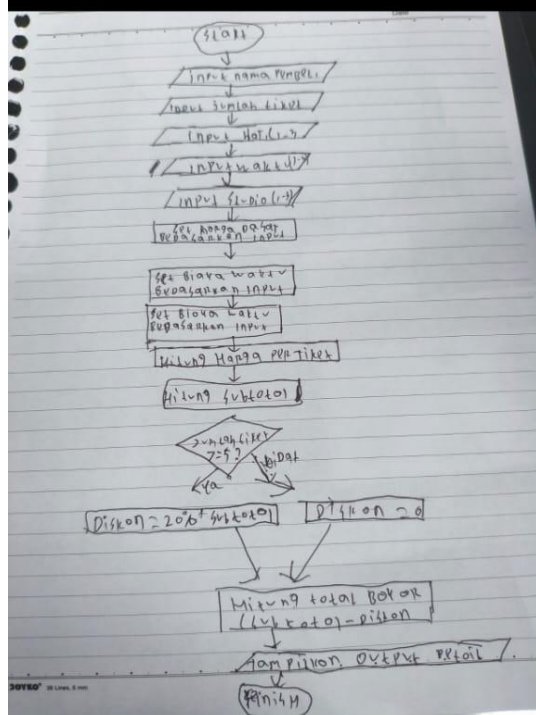 Start
Input nama Pembeli
Input Jumlah tiket
Input Hari (1-3)
Input waktu
Input Studio (1-3)
Set Harga Dasar
Berdasarkan Input
Set Biaya Waktu
Berdasarkan Input
Set Biaya Waktu
Berdasarkan Input
Hitung Harga Per Tiket
Hitung Subtotal
Jumlah tiket
>=5?
Tidak
Ya
Diskon = 20% * Subtotal
Diskon = 0
Hitung total Bayar
(Subtotal - Diskon
Tampilkan Output Detail
Finish
JOYKO 26 Lines, 8 mm